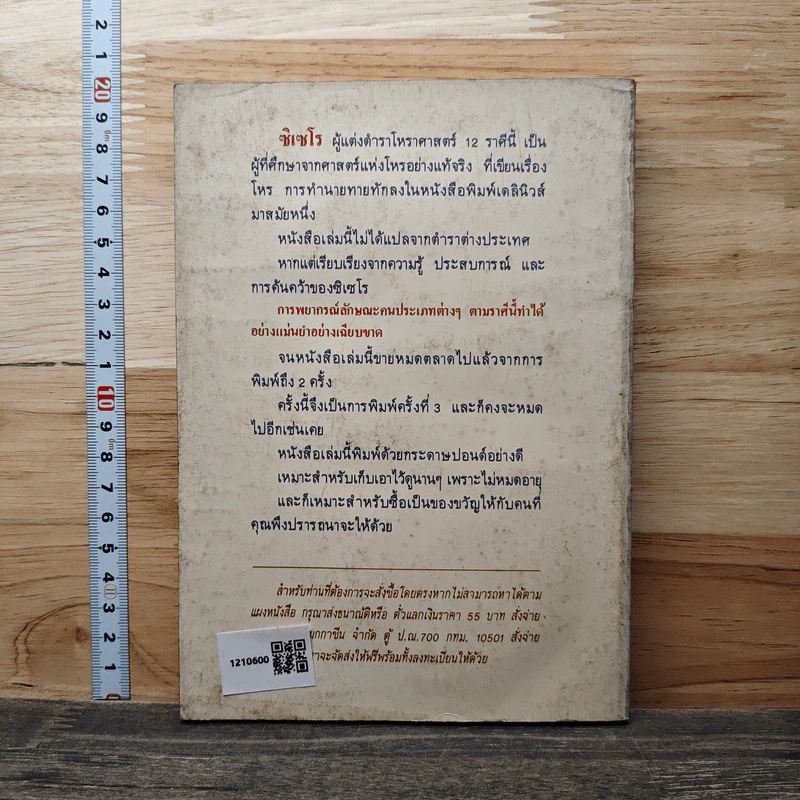 ซิเซโร ผู้แต่งตำราโหราศาสตร์ 12 ราศีนี้ เป็น
ผู้ที่ศึกษาจากศาสตร์แห่งโหรอย่างแท้จริง ที่เขียนเรื่อง
โหร การทำนายทายทักลงในหนังสือพิมพ์เดลินิวส์
มาสมัยหนึ่ง
หนังสือเล่มนี้ไม่ได้แปลจากตำราต่างประเทศ
หากแต่เรียบเรียงจากความรู้ ประสบการณ์ และ
การค้นคว้าของซิเซโร
การพยากรณ์ลักษณะคนประเภทต่างๆ ตามราศีนี้ทำได้
อย่างแม่นยำอย่างเฉียบขาด
จนหนังสือเล่มนี้ขายหมดตลาดไปแล้วจากการ
พิมพ์ถึง 2 ครั้ง
ครั้งนี้จึงเป็นการพิมพ์ครั้งที่ 3 และก็คงจะหมด
ไปอีกเช่นเคย
หนังสือเล่มนี้พิมพ์ด้วยกระดาษปอนด์อย่างดี
เหมาะสำหรับเก็บเอาไว้ดูนานๆ เพราะไม่หมดอายุ
และก็เหมาะสำหรับซื้อเป็นของขวัญให้กับคนที่
คุณพึงปรารถนาจะให้ด้วย
สำหรับท่านที่ต้องการจะสั่งซื้อโดยตรงหากไม่สามารถหาได้ตาม
แผงหนังสือ กรุณาส่งธนาณัติหรือ ตั๋วแลกเงินราคา 55 บาท สั่งจ่าย
กกาซีน จำกัด ตู้ ป.ณ.700 กทม. 10501 สั่งจ่าย
จะจัดส่งให้ฟรีพร้อมทั้งลงทะเบียนให้ด้วย
1210600
2
1
20
9
8
7
6
5
4
3
2
1
10
9
8
7
6
5
4
3
2
1